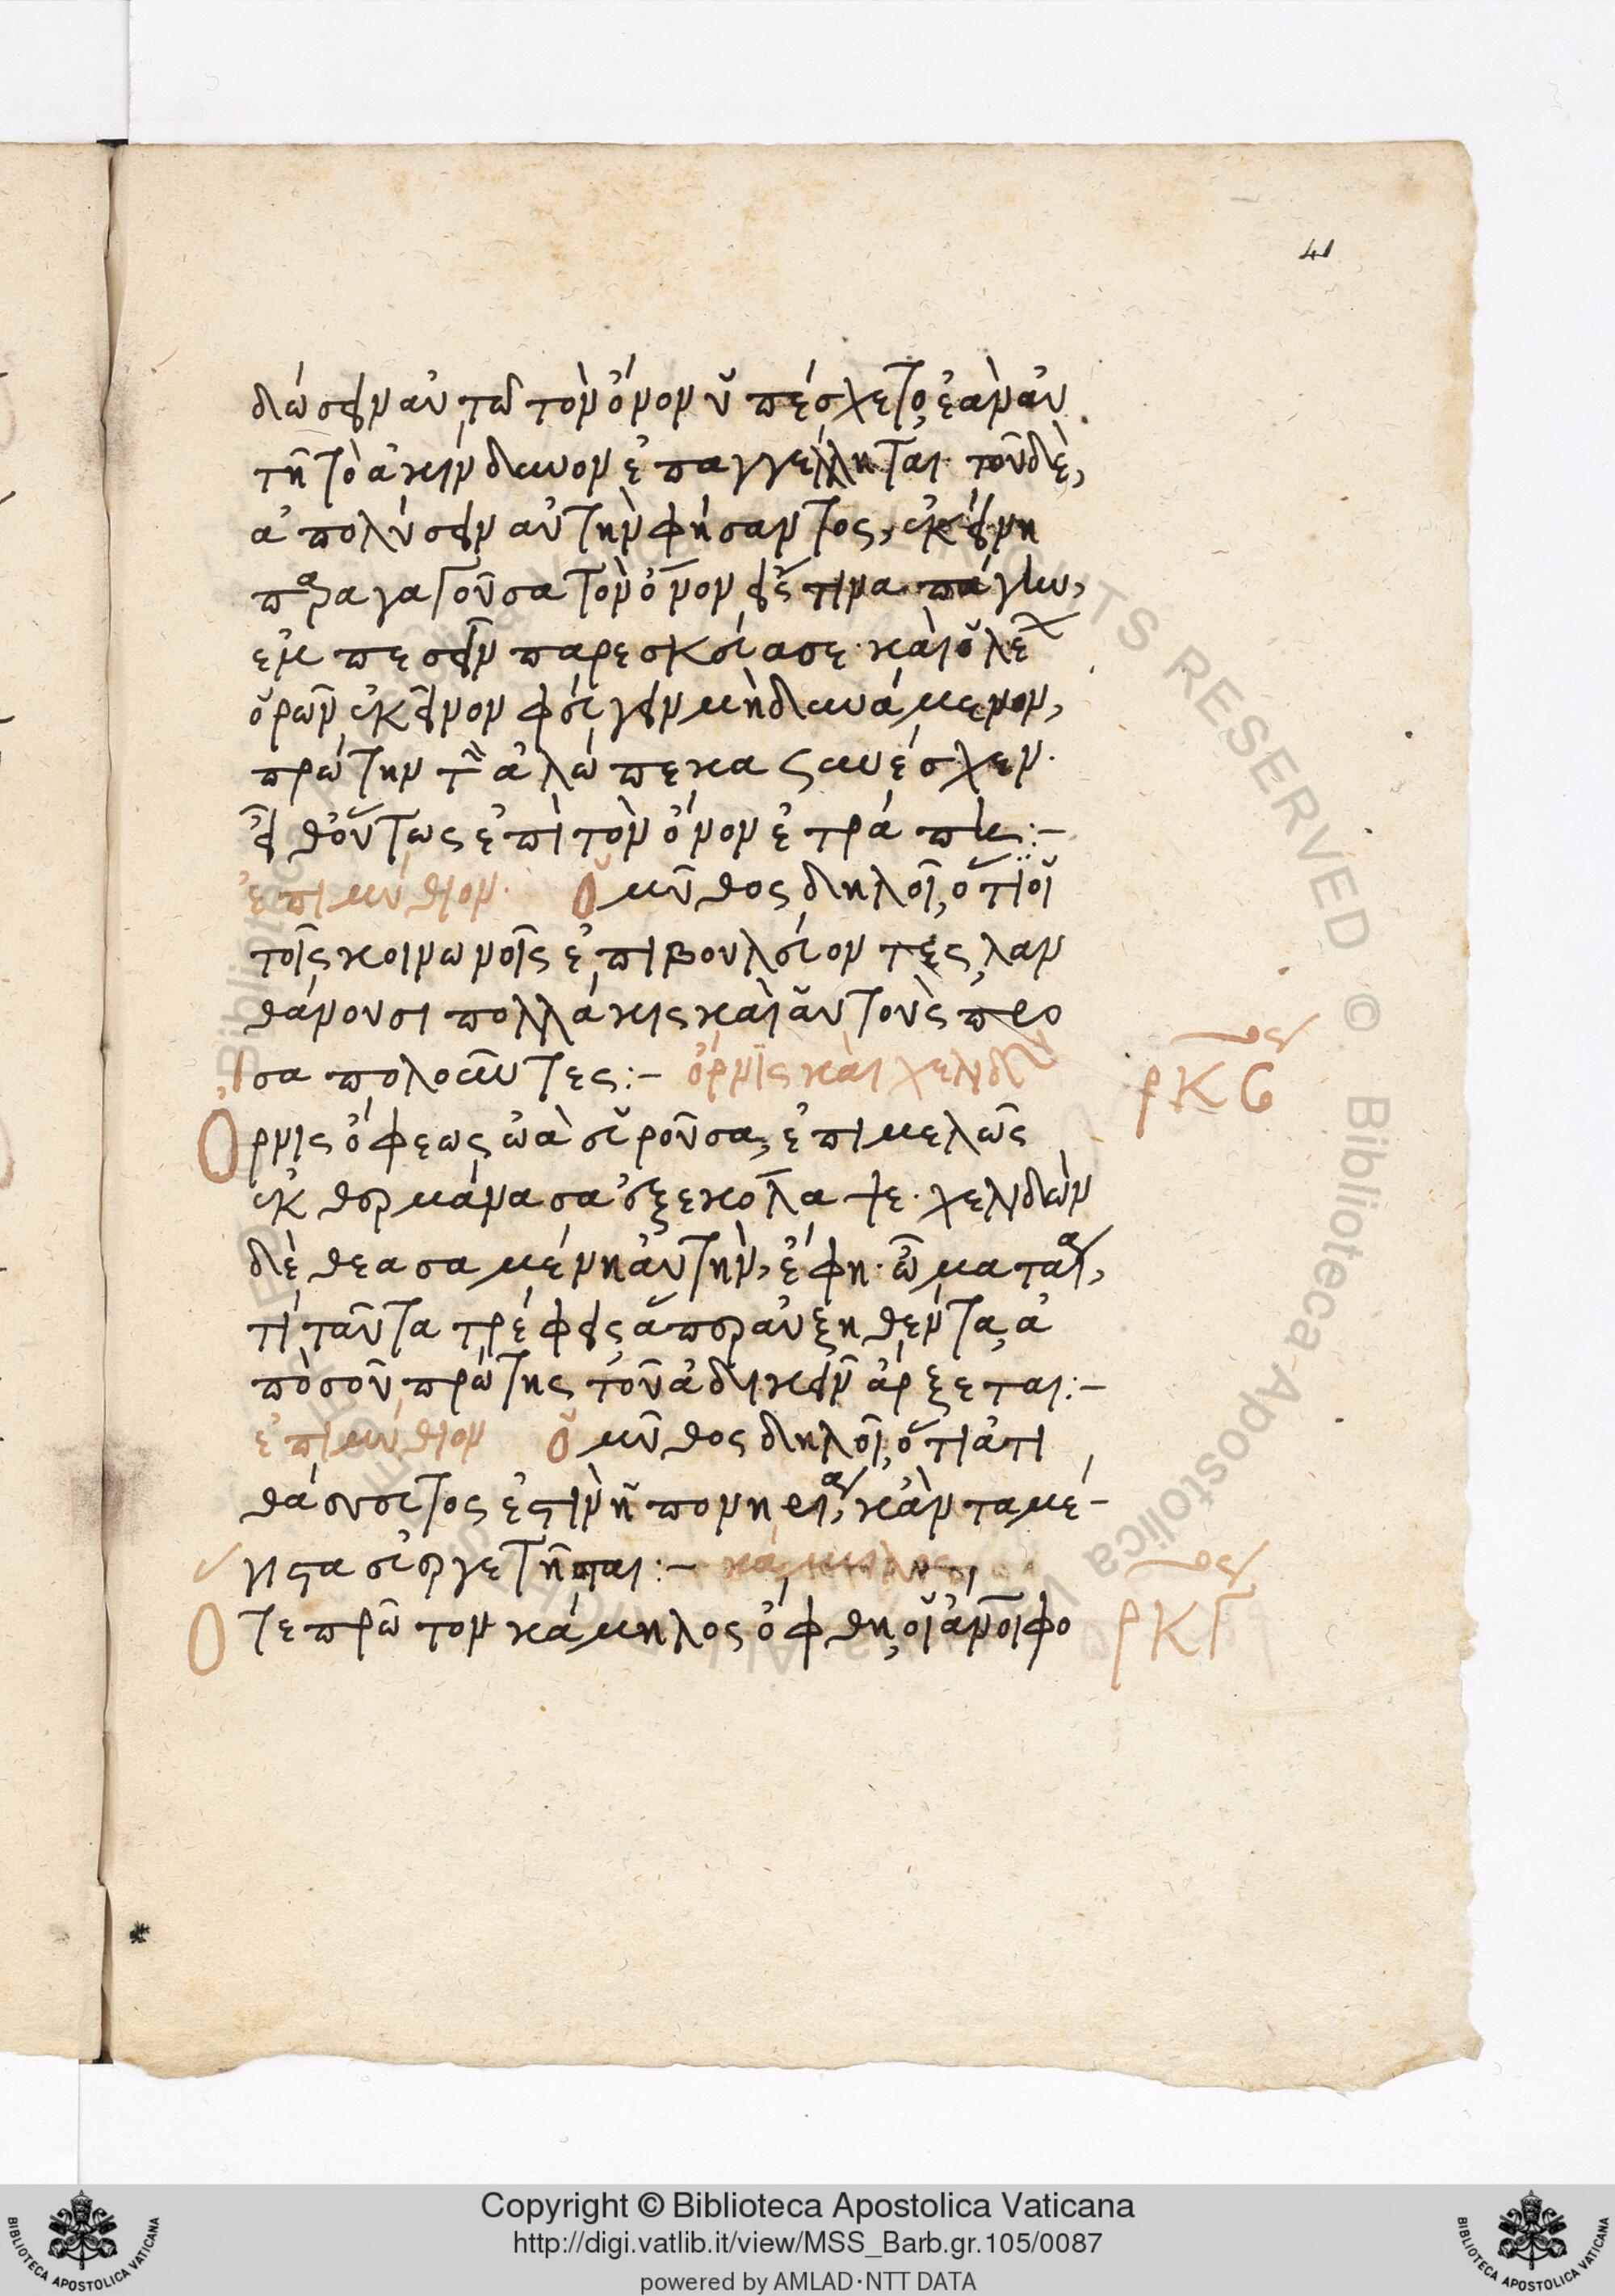 41
δώσειν αὐτῶ τὸν ὄνον ὑπέσχετο, ἐὰν αὐ
τῆ τὸ ἀκίνδυνον ἐπαγγέλληται· τοῦ δὲ,
ἀπολύσειν αὐτὴν φήσαντος, ἐκείνη
παραγαγοῦσα τὸν ὄνον εἴς τινα πάγην,
ἐμπεσεῖν παρεσκεύασε· καὶ ὁ λέ
ὁρῶν ἐκεῖνον φεύγειν μὴ δυνάμενον,
πρώτην τὴν ἀλώπεκα συνέσχεν·
εἶθ οὕτως ἐπὶ τὸν ὄνον ἐτράπη:-
ἐπιμύθιον· ὁ μῦθος δηλοῖ, ὅτι οἱ
τοῖς κοινωνοῖς ἐπιβουλεύοντες, λαν
θάνουσι πολλάκις καὶ αὑτοὺς προ
σαπολλύντες:- ὄρνις καὶ χελιδ
ρκϛ
Ορνις ὄφεως ὠὰ εὑροῦσα, ἐπιμελῶς
ἐκθερμάνασα ἐξεκόλαψε· χελιδὼν
δὲ θεασαμένη αὐτὴν, ἔφη· ὦ ματαία,
τί ταῦτα τρέφεις ἅπερ αὐξηθέντα, ἀ
πὸ σοῦ πρώτης τοῦ ἀδικεῖν ἄρξεται:-
ἐπιμύθιον ὁ μῦθος δηλοῖ, ὅτι ἀτι
θάσευτος ἐστὶν ἡ πονηρία, κἂν τὰ μέ-
γιστα εὐεργετῆται:- κάμηλος
Οτε πρῶτον κάμηλος ὄφθη, οἱ ἄνοι φο
ρκΓ
RIGHTS RESERVED © Biblioteca Apostolica Vaticana
BIBLIOTECA APOSTOLICA VATICANA
Copyright © Biblioteca Apostolica Vaticana
http://digi.vatlib.it/view/MSS_Barb.gr.105/0087
powered by AMLAD·NTT DATA
BIBLIOTECA APOSTOLICA VATICANA